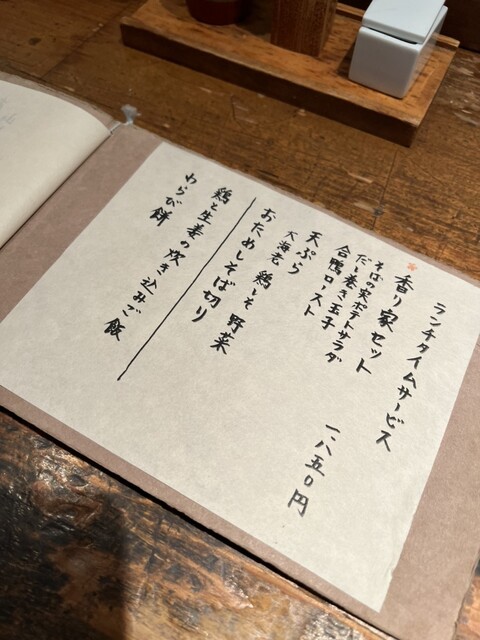 ランチタイムサービス
香り家セット
そばの実ポテトサラダ
だし巻き玉子
合鴨ロースト
一、八五〇円
天ぷら
大海老 鶏しそ 野菜
おためしそば切り
鶏と生姜の炊き込みご飯
わらび餅